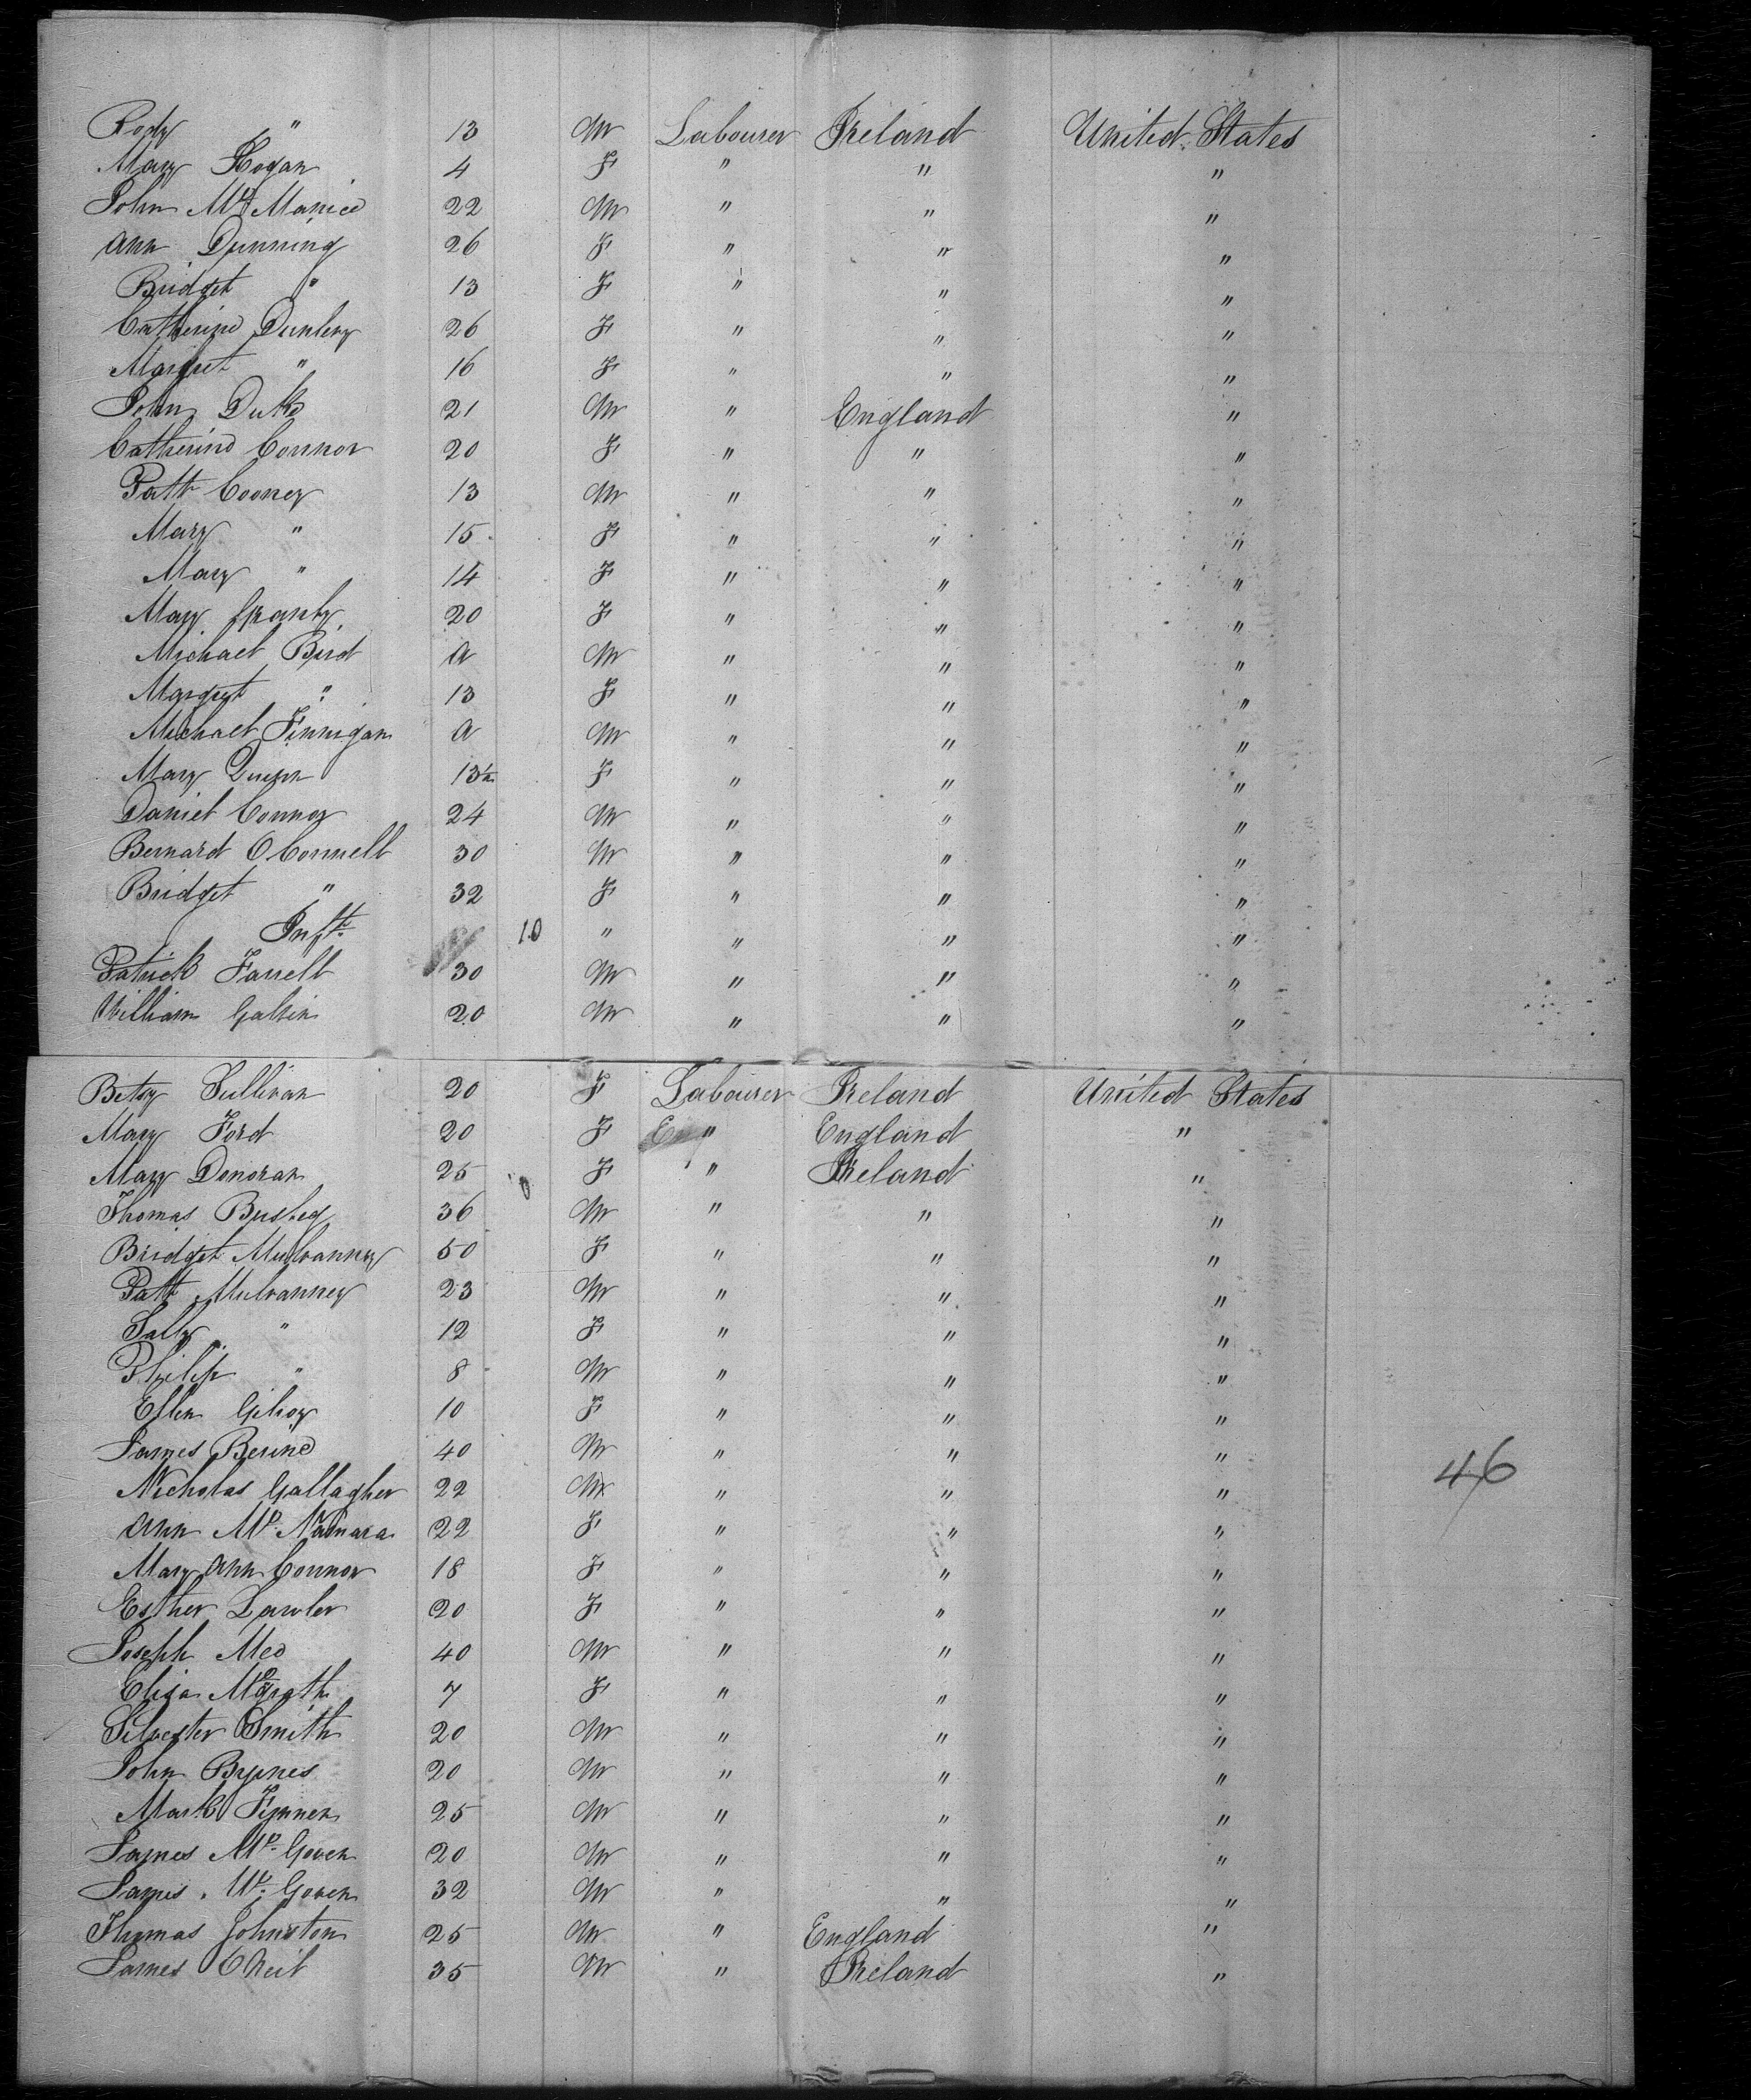 Rody " 13 M Labourer Ireland United States
Mary Hogan 4 F " " "
John McManied 22 M " " "
Ann Dunning 26 F " " "
Bridget " 13 F " " "
Catherine Dunlery 26 F " " "
Margret " 16 F " " "
John Duke 21 M " England "
Catherine Connor 20 F " " "
Patt Cooney 13 M " " "
Mary " 15 F " " "
Mary " 14 F " " "
Mary 20 F " " "
Michael Bird a M " " "
Margret " 13 F " " "
Michael Finnigan a M " " "
Mary Quinn 13½ F " " "
Daniel Connor 24 M " " "
Bernard O Connell 30 M " " "
Bridget " 32 F " " "
Inft. 10 " " " "
Patrick Farrell 30 M " " "
William Galvin 20 M " " "
Betsy Sullivan 20 F Labourer Ireland United States
Mary Ford 20 F " England "
Mary Donovan 25 F " Ireland "
Thomas Busteq 36 M " " "
Bridget Mulvanney 50 F " " "
Patt Mulvanney 23 M " " "
Sally " 12 F " " "
Philip " 8 M " " "
Ellen Gilroy 10 F " " "
James Beirne 40 M " " "
Nicholas Gallagher 22 M " " " 46
Ann McNamara 22 F " " "
Mary Ann Connor 18 F " " "
Esther Lawler 20 F " " "
Joseph Meo 40 M " " "
Eliza McGrath 7 F " " "
Silvester Smith 20 M " " "
John Byrnes 20 M " " "
Mark Finnen 25 M " " "
James Mc. Goven 20 M " " "
James Mc. Goven 32 M " " "
Thomas Johnston 25 M " England "
James O Neil 35 M " Ireland "